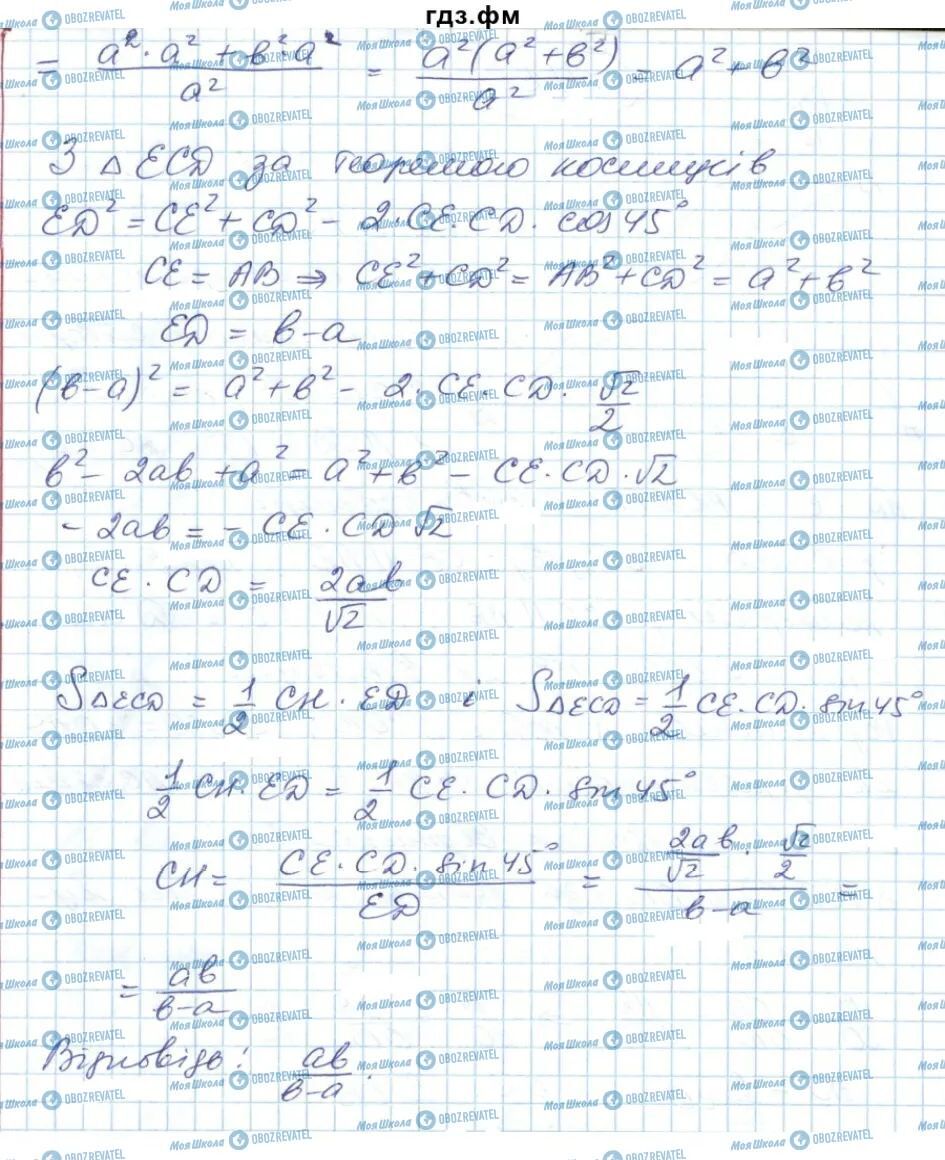 гдз.фм
= a²·a² + b²·a² / a² = a²(a² + b²) / a² = a² + b²
З △ECD за теоремою косинусів
ED² = CE² + CD² - 2·CE·CD·cos 45°
CE = AB ⇒ CE² + CD² = AB² + CD² = a² + b²
ED = b - a
(b - a)² = a² + b² - 2·CE·CD·√2/2
b² - 2ab + a² = a² + b² - CE·CD·√2
- 2ab = - CE·CD √2
CE·CD = 2ab/√2
S△ECD = 1/2 CH·ED і S△ECD = 1/2 CE·CD·sin 45°
1/2 CH·ED = 1/2 CE·CD·sin 45°
CH = CE·CD·sin 45° / ED = 2ab/√2 · √2/2 / b - a =
= ab / b - a
Відповідь: ab / b - a.
МояШкола OBOZREVATEL